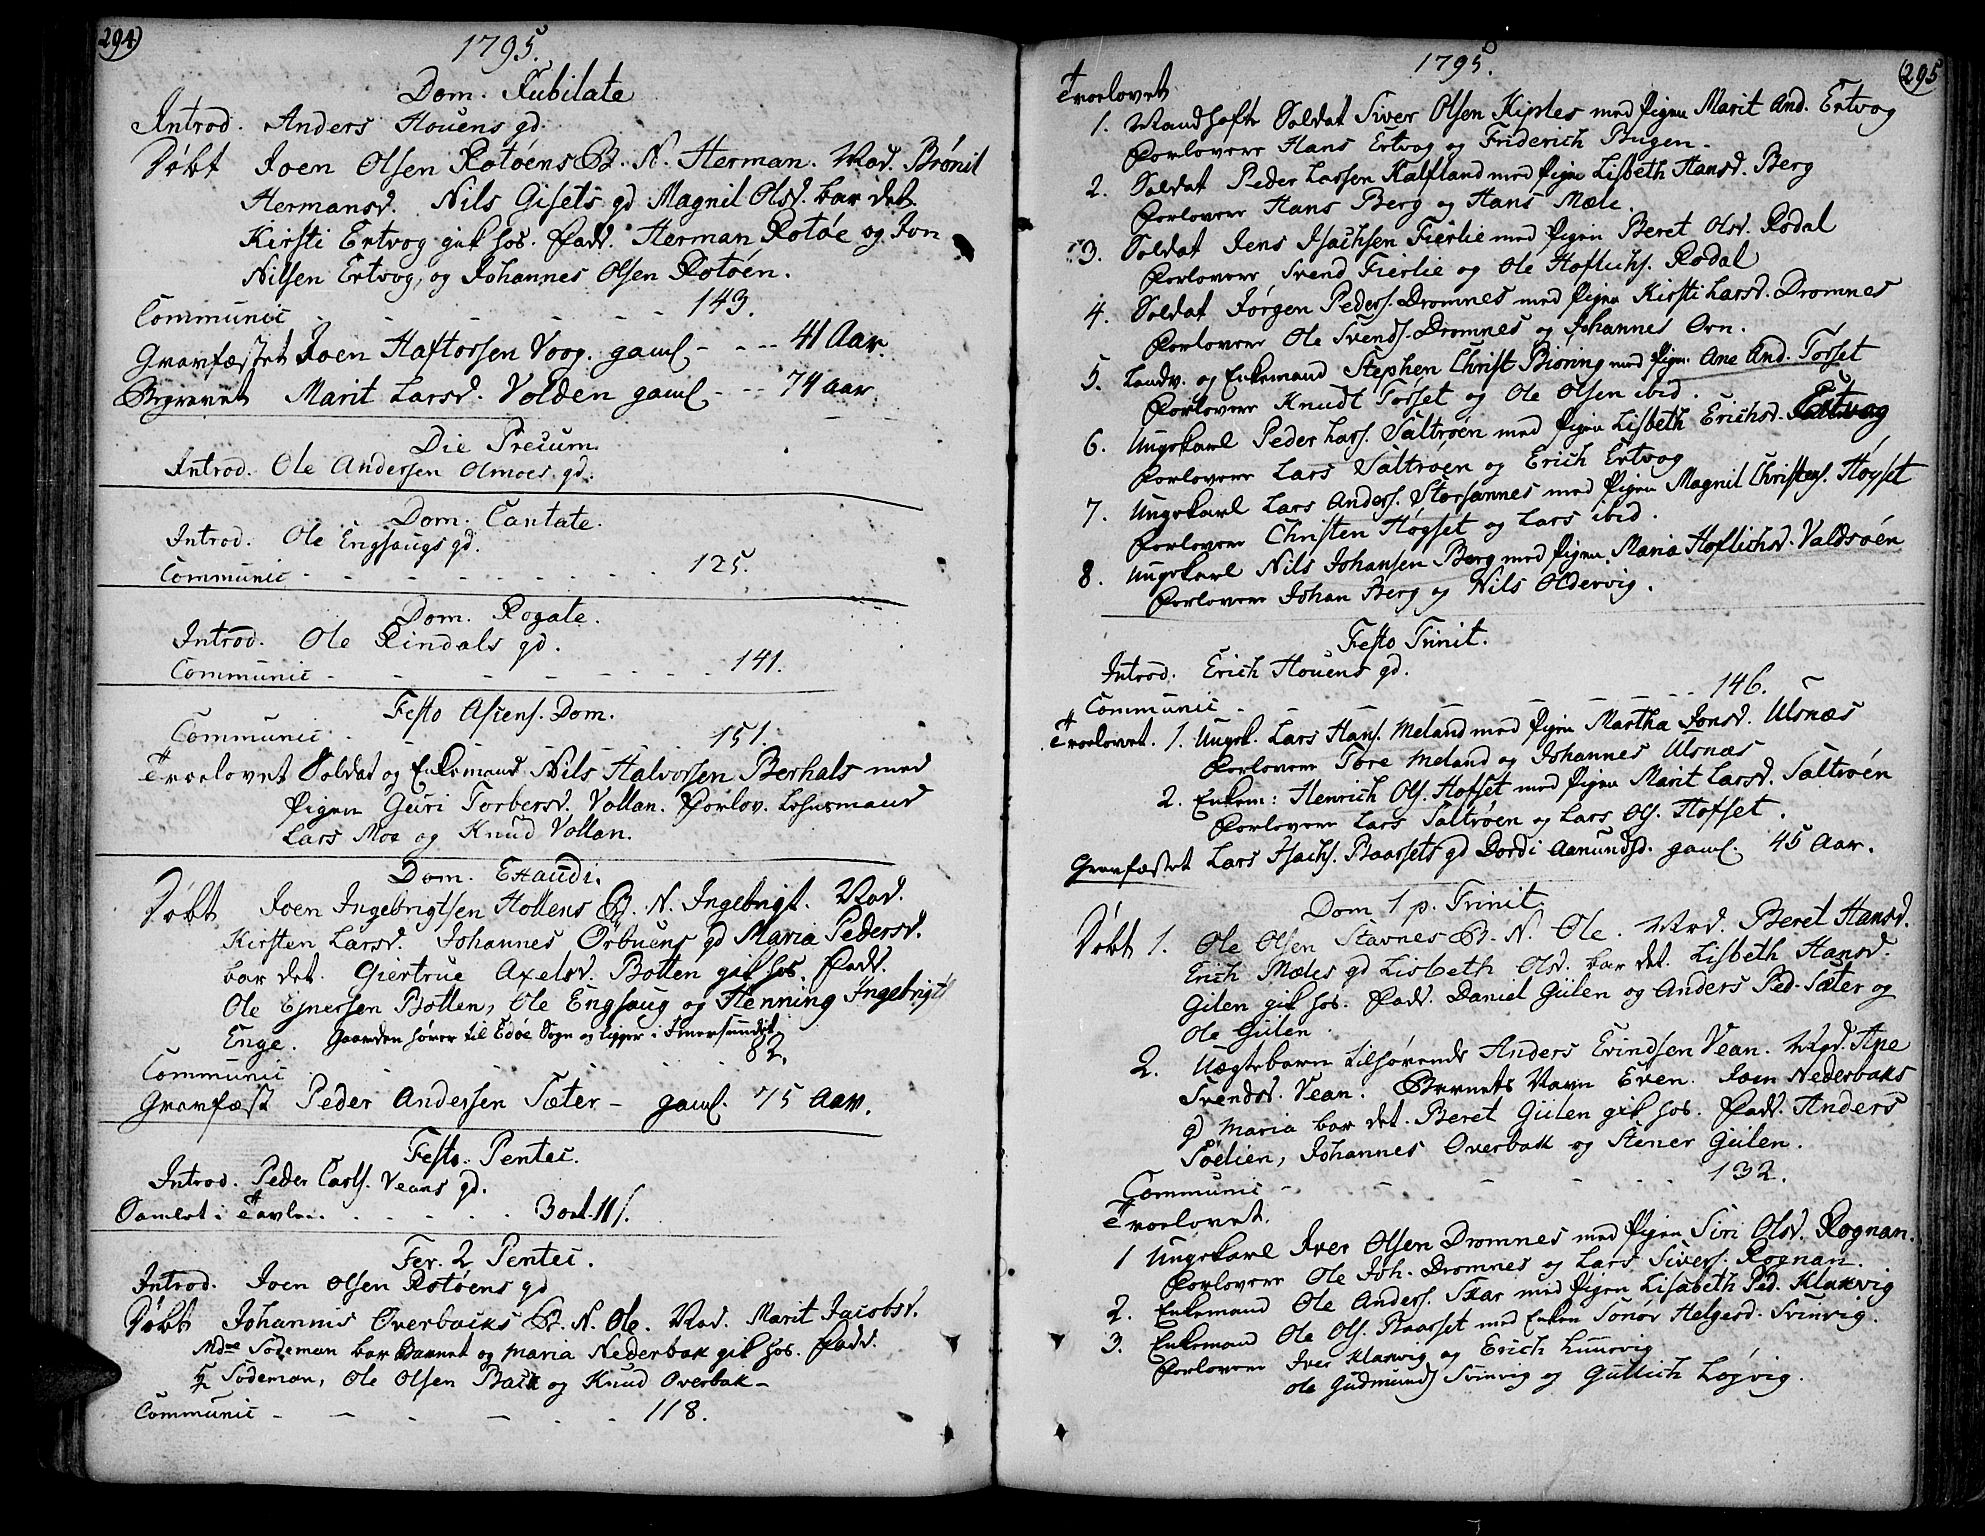 294)
1795.
Dom. Jubilate
Introd. Anders Houens gd.
Døbt Joen Olsen Rotøens B. N. Herman. Mod. Brønil
Hermansd. Nils Gisets gd Magnil Olsd. bar det
Kirsti Ertvog gik hos. Fadd. Herman Rotøe og Jon
Nilsen Ertvog, og Johannes Olsen Rotøen.
Communic - - - - - - 143.
Gravfæstet Joen Haftorsen Voog. gaml - - - 41 Aar.
Begravet Marit Larsd. Volden gaml - - 74 aar.
Die Precum.
Introd. Ole Andersen Olmoes gd.
Dom. Cantate.
Introd. Ole Engsaugs gd.
Communic - - - - - - - - 125.
Dom. Rogate.
Introd. Ole Rindals gd.
Communic - - - - - - - 141.
Festo Ascens. Dom.
Communic - - - - - - 151.
Troelovet Soldat og Enkemand Nils Halvorsen Berhals med
Pigen Guri Torbersd. Vollan. Forlov. Lehnsmand
Lars Moe og Knud Vollan.
Dom. Exaudi.
Døbt Joen Ingebrigtsen Hollens B. N. Ingebrigt. Mod.
Kirsten Larsd. Johannes Orbuens gd Maria Pedersd.
bar det. Giertrue Axelsd. Botten gik hos. Fadd.
Ole Ejnersen Botten, Ole Engsaug og Henning Ingebrigts
Enge. Gaarden hører til Edøe Sogn og ligger i Imersundet
Communic - - - - - 82.
Gravfæst Peder Andersen Sæter - gaml. 75 Aar.
Festo Pentec.
Introd. Peder Carls. Veans gd.
Samlet i Tavlen. - - - - - 3 ort. 11 s.
Fer. 2 Pentec.
Introd. Joen Olsen Rotøens gd
Døbt Johannis Overbacks B. N. Ole. Mod. Marit Jacobsd.
Mdme Sodeman bar Barnet og Maria Nederbak gik hos. Fadd.
Hr Sodeman, Ole Olsen Back og Knud Overbak -
Communic - - - - - 118.
1795.
(295
Troelovet
1. Mandhafte Soldat Siver Olsen Kiples med Pigen Marit And. Ertvog
Forlovere Hans Ertvog og Friderich Bugen -
2. Soldat Peder Larsen Kalfland med Pigen Lisbeth Hansd. Berg
Forlovere Hans Berg og Hans Mæle.
3. Soldat Jens Isachsen Fierlie med Pigen Beret Olsd. Rodal
Forlovere Svend Fierlie og Ole Hoflichs. Rodal
4. Soldat Jørgen Peders. Dromnes med Pigen Kirsti Larsd. Dromnes
Forlovere Ole Svends. Dromnes og Johannes Orn.
5. Landv. og Enkemand Stephen Christ. Bioring med Pigen Ane And. Torset
Forlovere Knudt Torset og Ole Olsen ibid.
6. Ungekarl Peder Lars. Saltrøen med Pigen Lisbeth Erichsd. Ertvog
Forlovere Lars Saltrøen og Erich Ertvog
7. Ungekarl Lars Anders. Storsannes med Pigen Magnil Christens. Høgset
Forlovere Christen Høgset og Lars ibid.
8. Ungekarl Nils Johansen Berg med Pigen Maria Hoflichsd. Valdsøen
Forlovere Johan Berg og Nils Oldervig.
Festo Trinit.
Introd. Erich Houens gd.
Communic - - - - - - - 146.
Troelovet. 1. Ungk. Lars Hans. Meland med Pigen Martha Jonsd. Ulsnæs
Forlovere Tore Meland og Johannes Ulsnæs
2. Enkem: Henrich Ols. Hofset med Pigen Marit Larsd. Saltrøen
Forlovere Lars Saltrøen og Lars Ols. Hofset.
Gravfæstet Lars Isachs. Baarsets gd Dordi Aamundsd. gaml. 45 Aar.
Dom 1 p. Trinit.
Døbt 1. Ole Olsen Stavnes B. N. Ole. Mod. Beret Hansd.
Erich Mæles gd Lisbeth Olsd. bar det. Lisbeth Hansd.
Gülen gik hos. Fadd. Daniel Gülen og Anders Ped. Sæter og
Ole Gülen.
2. Uægtebarn tilhørende Anders Evindsen Vean. Mod. Ane
Svendsd. Vean. Barnets Navn Even. Joen Nederbaks
gd Maria bar det. Beret Gülen gik hos. Fadd. Anders
Soelien, Johannes Overbak og Stener Gülen.
Communic - - - - - 132.
Troelovet.
1 Ungekarl Iver Olsen Dromnes med Pigen Siri Olsd. Rognan.
Forlovere Ole Joh. Dromnes og Lars Sivers. Rognan.
2. Enkemand Ole Anders. Skar med Pigen Lisabeth Ped. Klakvig
3. Enkemand Ole Ols. Baarset med Enken Sonør Helgesd. Svinvig.
Forlovere Iver Klakvig og Erich Luurvig
Ole Gudmunds Svinvig og Gullich Løgvig.